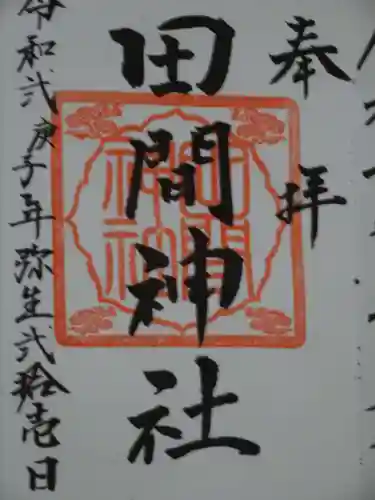 奉拝
田間神社
令和弐庚子年弥生弐拾壱日
田間神社